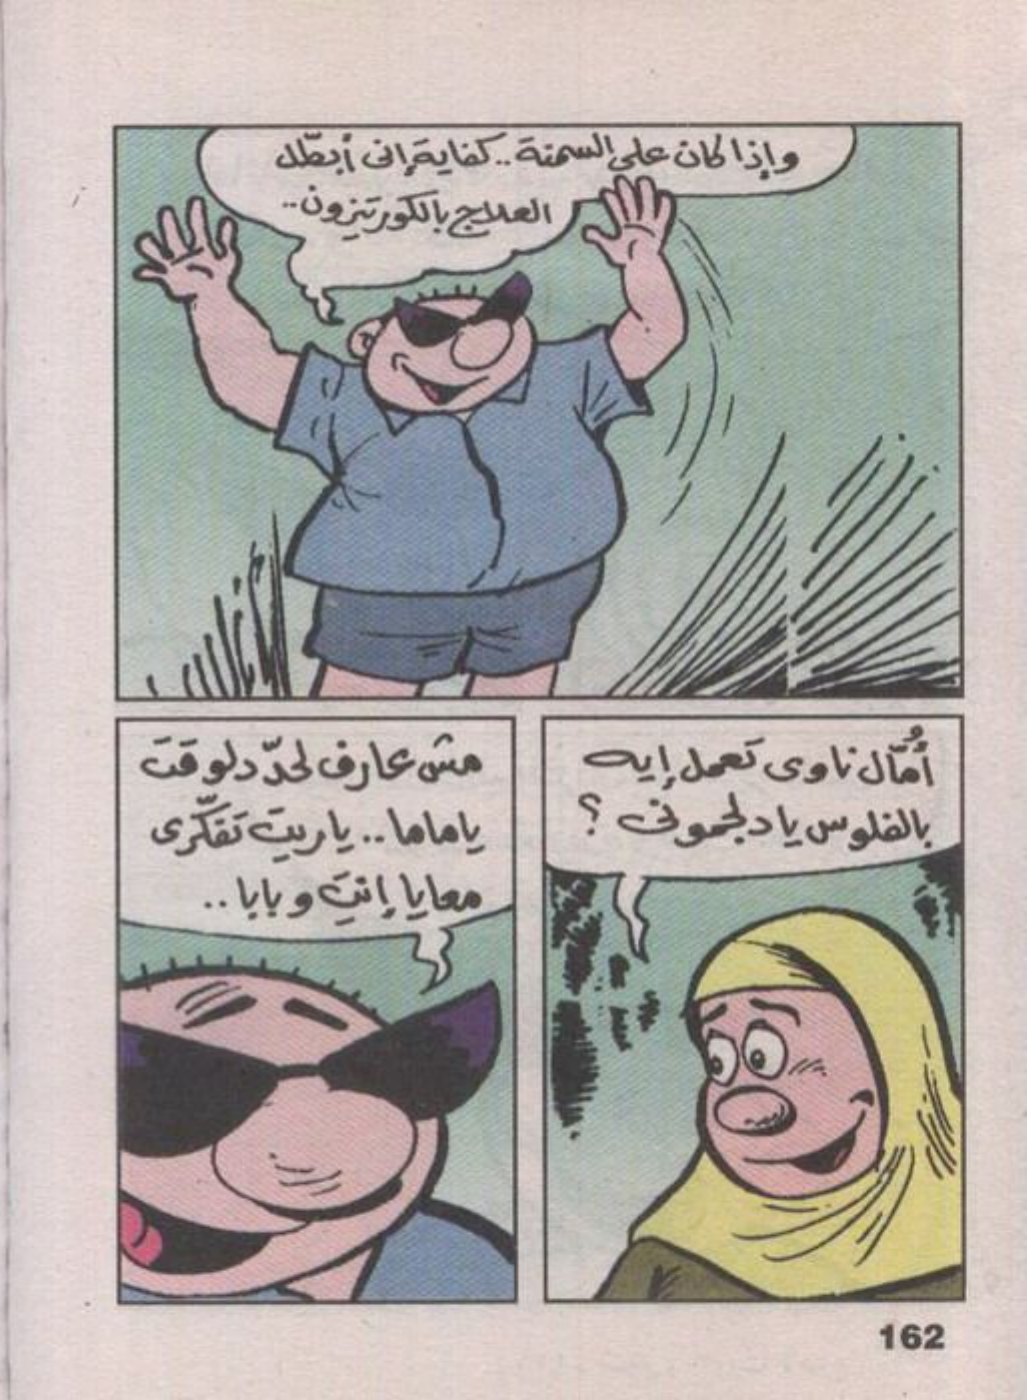 وإذا كان على السمنة.. كفاية إنى أبطّل
العلاج بالكورتيزون..
أُمّال ناوى تعمل إيه
بالفلوس يا دلجمونى ؟
مش عارف لحدّ دلوقت
ياماما.. ياريت تفكّرى
معايا إنتِ وبابا..
162